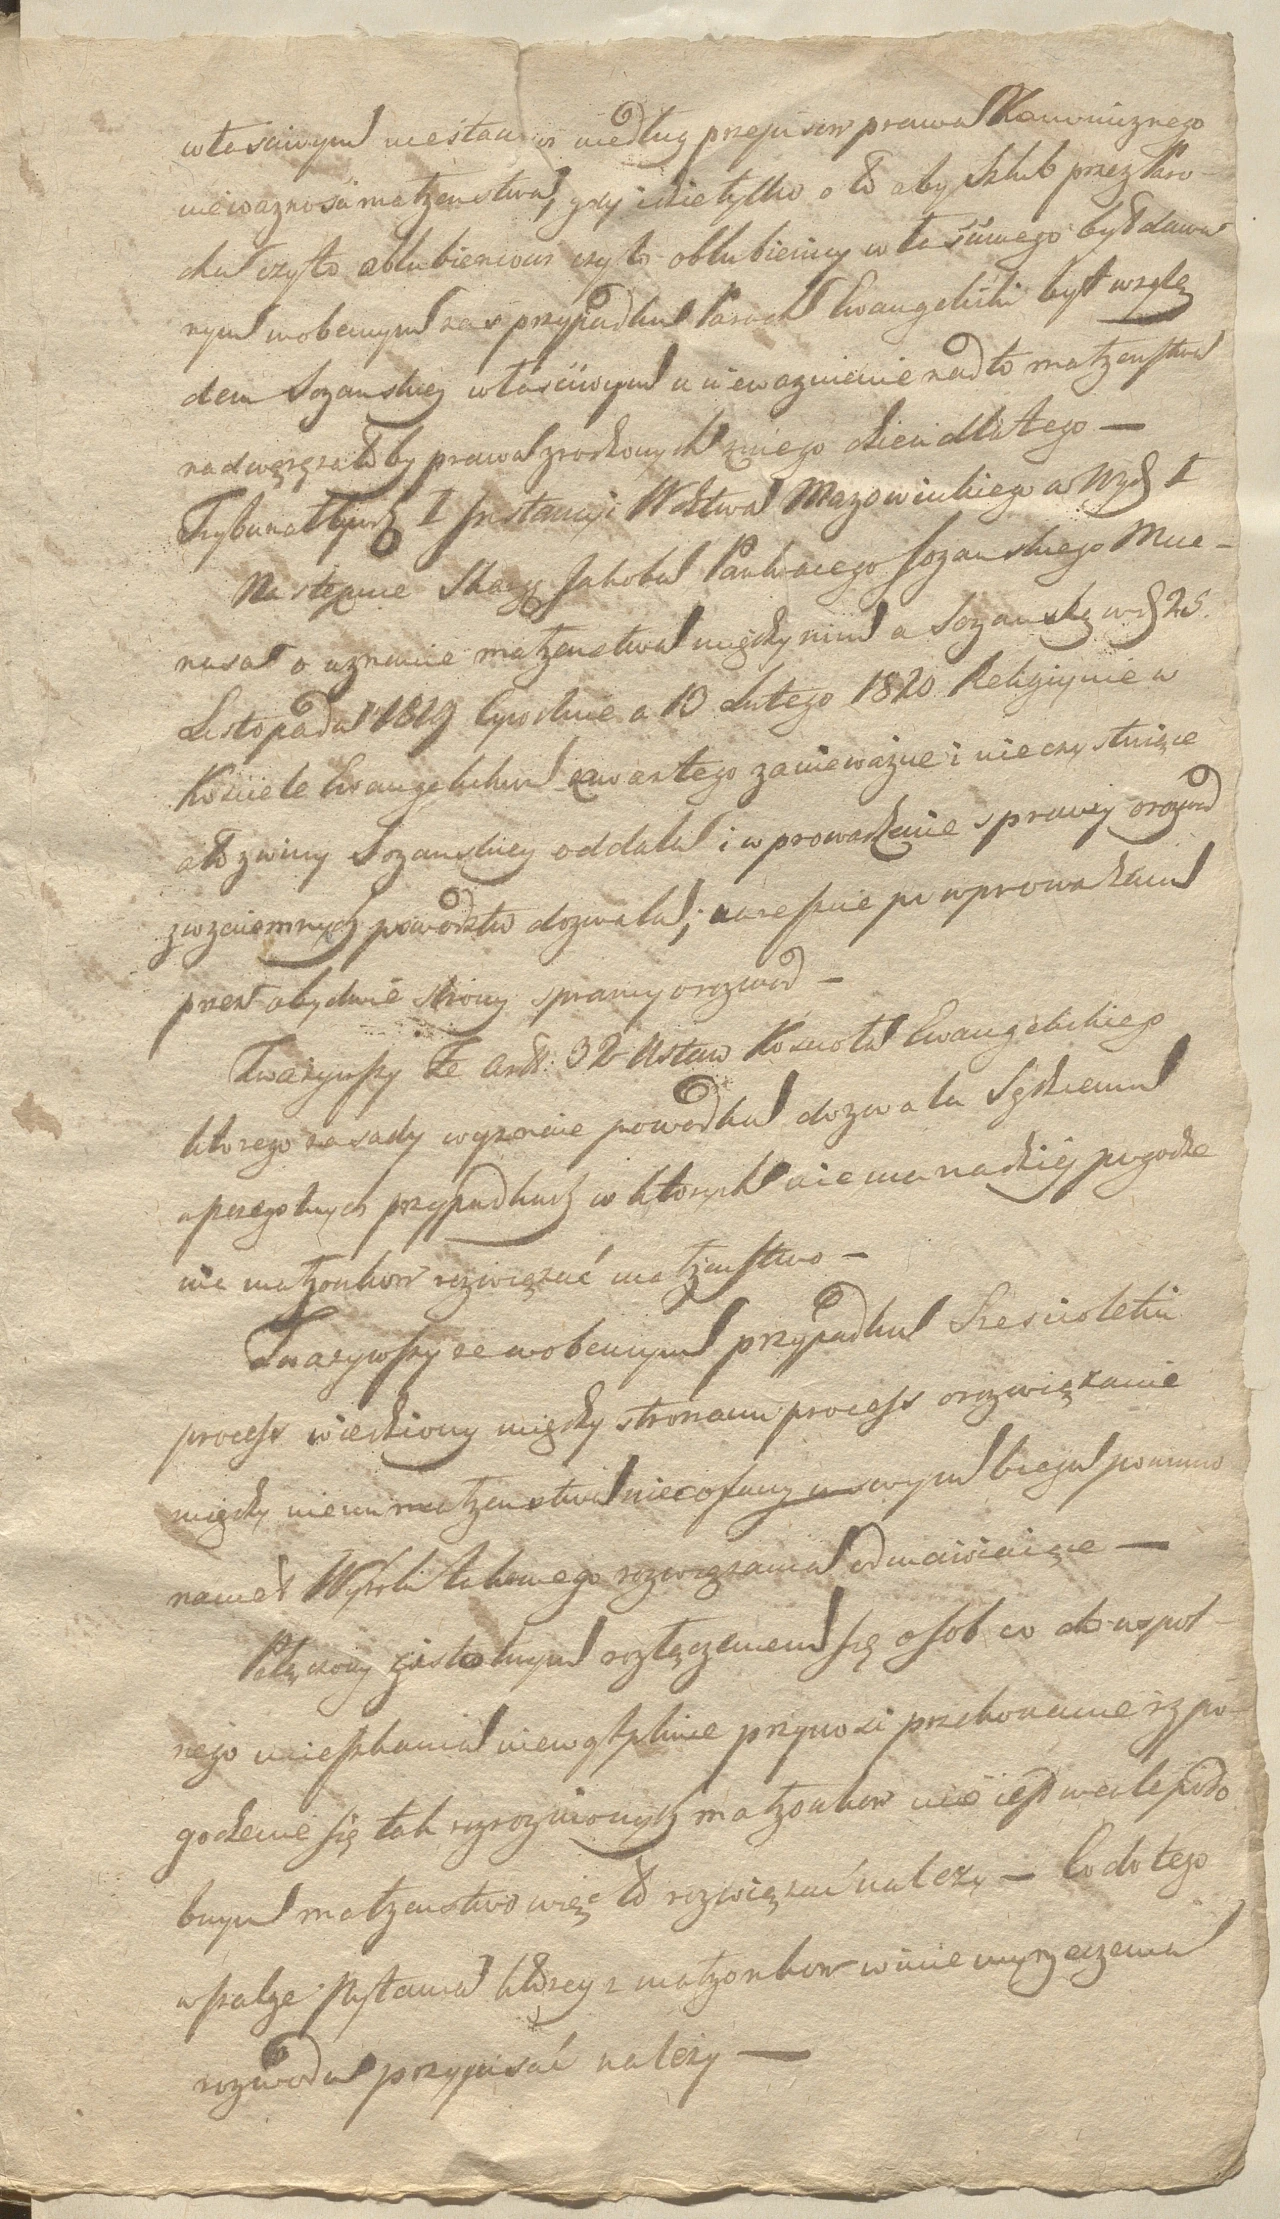 własciwym niestanowi według przepisow prawa Kanonicznego
nieważnosci małżenstwa, gdy idzie tylko o to aby szlub przez Paro-
cha czyto oblubiencowi czyto oblubienicy własciwego był dawa-
nym wobecnym zas przypadku Paroch Ewangelicki był wzglę
dem Sozanskiey właściwym unieważnienie nadto małżenstwa
nadweręzałoby prawa zrodzonych zniego dzieci dlatego —
Trybunał Cywil: I Instancyi Wdztwa Mazowieckiego w Wydz I
Następnie Skargę Jakoba Pankracego Sozanskiego Mue-
nasa o uznanie małzenstwa między nim a Sozanską w d 25
Listopada 1819 Cywilnie a 13 Lutego 1820 Religiynie w
Kosciele Ewangelickim zawartego zanieważne i nieczystniące
a to zwiny Sozanskiey oddala i wprowadzenie sprawy orozwod
zwzaiemnych powodztw dozwala; nareszcie po wprowadzeniu
przez obydwie strony sprawy orozwod —
Zważywszy że art: 32 Ustaw Koscioła Ewangelickiego
ktorego zasady wyznanie powodka dozwala Sędziemu
w szczegolnych przypadkach w ktorych niema nadziei pogodze
nia małżonkow rozwiązać małżenstwo —
Zważywszy ze wobecnym przypadku Szescioletni
process wiedziony między stronami process orozwiązanie
między niemi małzenstwa niecofany w swym biegu pomimo
nawet Wyroki takowego rozwiązania odmawiaiące —
Połączony zistotnym rozłączeniem się osob co do wspol-
nego mieszkania niewątpliwie przynosi przekonanie iz po-
godzenie się tak rozrożnionych małzonkow nie iest wcale podo
bnym małzenstwo więc to rozwiązać nalezy — Co do tego
wszakze Pytania ktorey z małzonkow winie wyrzeczenia
rozwodu przypisać nalezy —